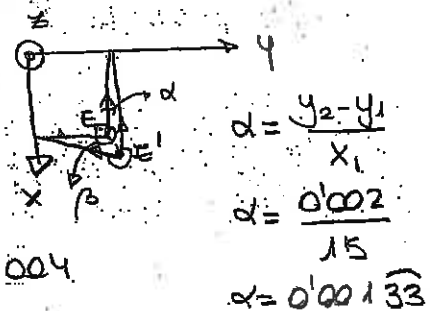 z
y
E
α
E'
x
β
α = y₂-y₁ / x₁
α = 0'002 / 15
004
α = 0'001 33